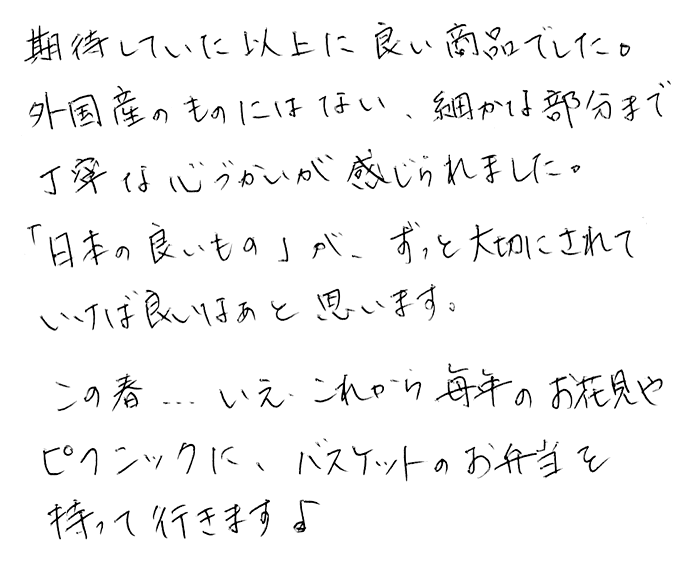 期待していた以上に良い商品でした。
外国産のものにはない、細かな部分まで
丁寧な心づかいが感じられました。
「日本の良いもの」が、ずっと大切にされて
いけば良いなぁと思います。
この春…いえ、これから毎年のお花見や
ピクニックに、バスケットのお弁当を
持って行きます♪